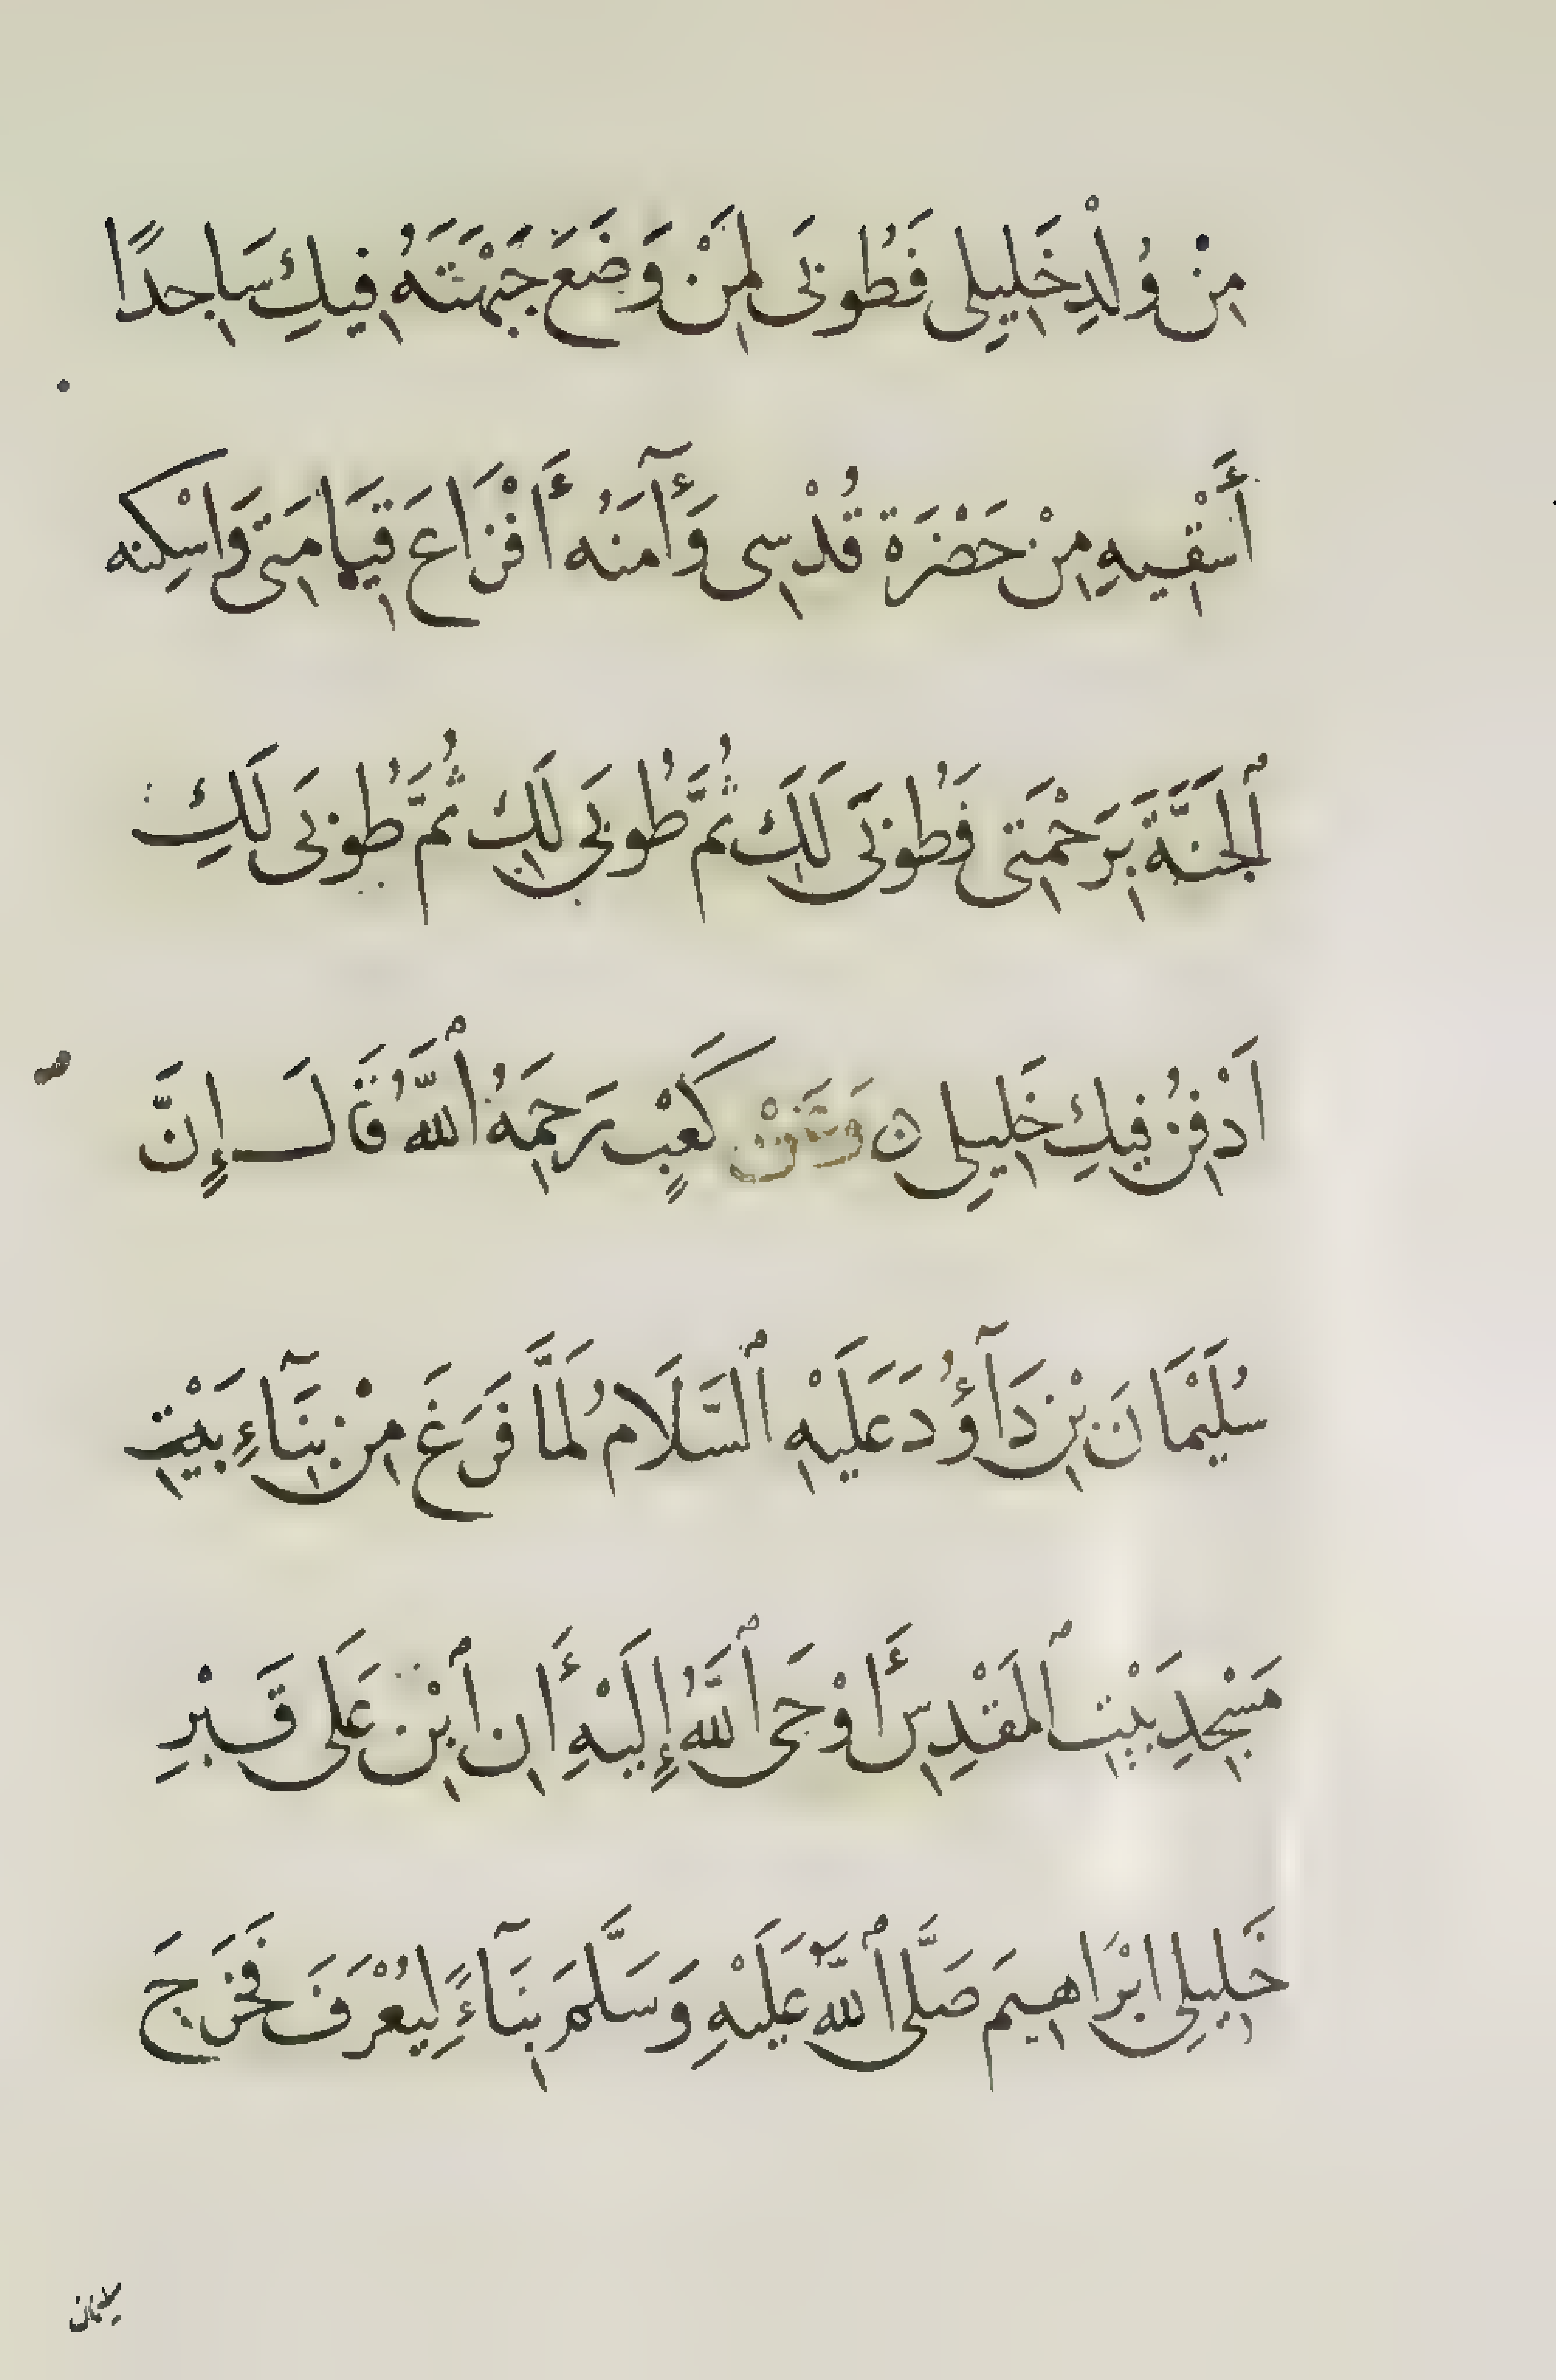 مِنْ وُلْدِ خَلِيلِى فَطُوبَى لِمَنْ وَضَعَ جَبْهَتَهُ فِيكِ سَاجِدًا
أَسْقِيهِ مِنْ حَضْرَةِ قُدْسِى وَأَآمَنُه أَفْزَاعَ قِيَامَتِى وَاسْكِنه
ٱلجَنَّةَ بِرَحْمَتِى فَطُوبَى لَكِ ثُمَّ طُوبَى لَكِ ثُمَّ طُوبَى لَكِ
اَدْفِنُ فِيكِ خَلِيلِى ۝ وَعَنْ كَعْبٍ رَحِمَهُ ٱللَّهُ قَالَ إِنَّ
سُلَيْمَانَ بْنِ دَآؤُدَ عَلَيْهِ ٱلسَّلَامُ لَمَّا فَرَغَ مِنْ بِنَآءِ بَيْتِ
مَسْجِدِ بَيْتِ ٱلمَقْدِسِ أَوْحَى ٱللَّهُ إِلَيْهِ أَنِ ٱبْنِ عَلَى قَبْرِ
خَلِيلِى ابْرَاهِيمَ صَلَّى ٱللَّه عَلَيْهِ وَسَلَّمَ بِنَآءً لِيُعْرَفَ فَخَرَجَ
سليمان